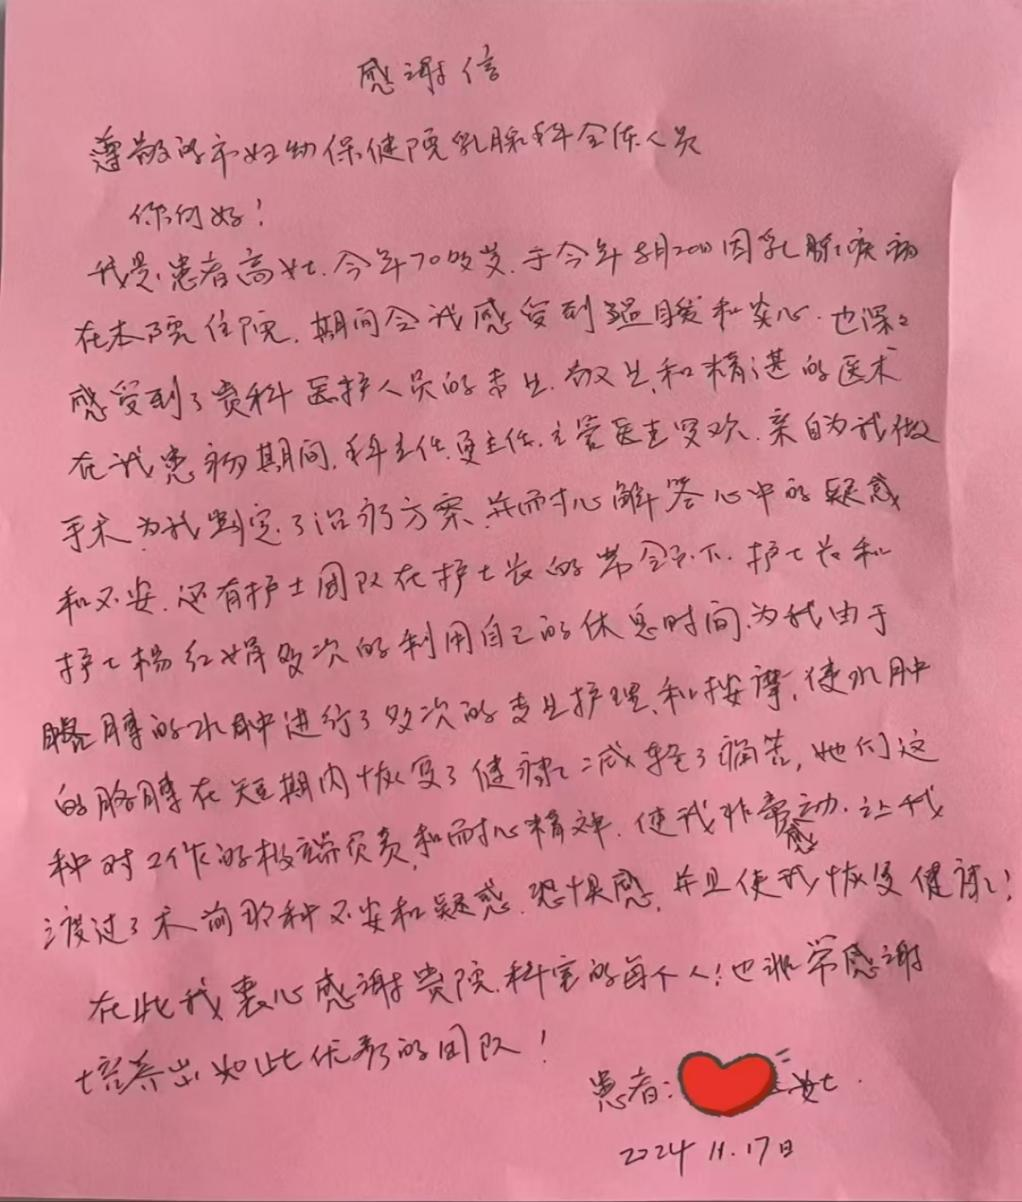 感谢信
尊敬的市妇幼保健院乳腺科全体人员
你们好！
我是患者高女士.今年70岁.于今年8月20日因乳腺疾病
在本院住院.期间令我感受到温暖和关心.也深深
感受到了贵科医护人员的专业.敬业.和精湛的医术
在我患病期间.科主任.主任.主管医生.亲自为我做
手术.为我制定了治疗方案.并耐心解答心中的疑惑
和不安.还有护士团队在护士长的带领下.护士长和
护士杨红娟多次的利用自己的休息时间.为我由于
胳膊的水肿进行了多次的专业护理.和按摩,使水肿
的胳膊在短期内恢复了健康减轻了痛苦,她们这
种对工作的极端负责,和耐心精神.使我非常感动.让我
渡过了术前那种不安和疑惑.恐惧感.并且使我恢复健康!
在此我衷心感谢贵院.科室的每个人!也非常感谢
培养出如此优秀的团队!
患者: 女士.
2024 11.17日